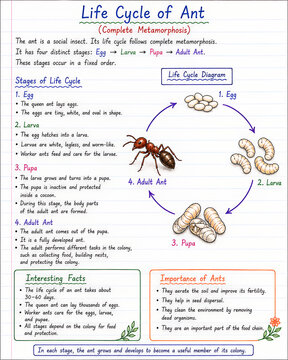 Life Cycle of Ant
(Complete Metamorphosis)
The ant is a social insect. Its life cycle follows complete metamorphosis.
It has four distinct stages: Egg → Larva → Pupa → Adult Ant.
These stages occur in a fixed order.
Stages of Life Cycle
1. Egg
• The queen ant lays eggs.
• The eggs are tiny, white, and oval in shape.
2. Larva
• The egg hatches into a larva.
• Larvae are white, legless, and worm-like.
• Worker ants feed and care for the larvae.
3. Pupa
• The larva grows and turns into a pupa.
• The pupa is inactive and protected
inside a cocoon.
• During this stage, the body parts
of the adult ant are formed.
4. Adult Ant
• The adult ant comes out of the pupa.
• It is a fully developed ant.
• The adult performs different tasks in the colony,
such as collecting food, building nests,
and protecting the colony.
Life Cycle Diagram
1. Egg
2. Larva
3. Pupa
4. Adult Ant
Interesting Facts
• The life cycle of an ant takes about
30–60 days.
• The queen ant can lay thousands of eggs.
• Worker ants care for the eggs, larvae,
and pupae.
• All stages depend on the colony for food
and protection.
Importance of Ants
• They aerate the soil and improve its fertility.
• They help in seed dispersal.
• They clean the environment by removing
dead organisms.
• They are an important part of the food chain.
In each stage, the ant grows and develops to become a useful member of its colony.